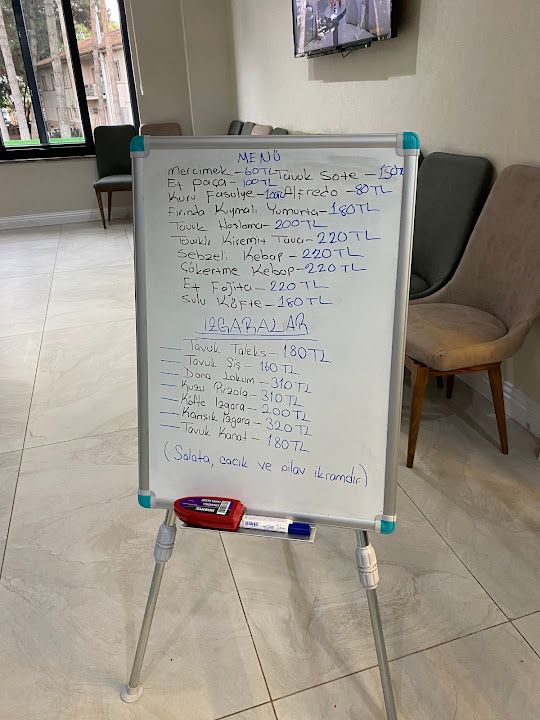 MENÜ
Mercimek - 60TL Tavuk Sote - 150TL
Et paça - 100TL
Kuru Fasulye - 100TL Alfredo - 80TL
Fırında Kıymalı Yumurta - 180TL
Tavuk Haslama - 200TL
Tavuklu Kiremit Tava - 220TL
Sebzeli Kebap - 220TL
Çökertme Kebap - 220TL
Et Fajita - 220TL
Sulu Köfte - 180TL
IZGARALAR
Tavuk Taleks - 180TL
Tavuk Şiş - 160TL
Dana Lokum - 310TL
Kuzu Pirzola - 310TL
Köfte Izgara - 200TL
Karışık Izgara - 320TL
Tavuk Kanat - 180TL
(Salata, cacık ve pilav ikramdır)